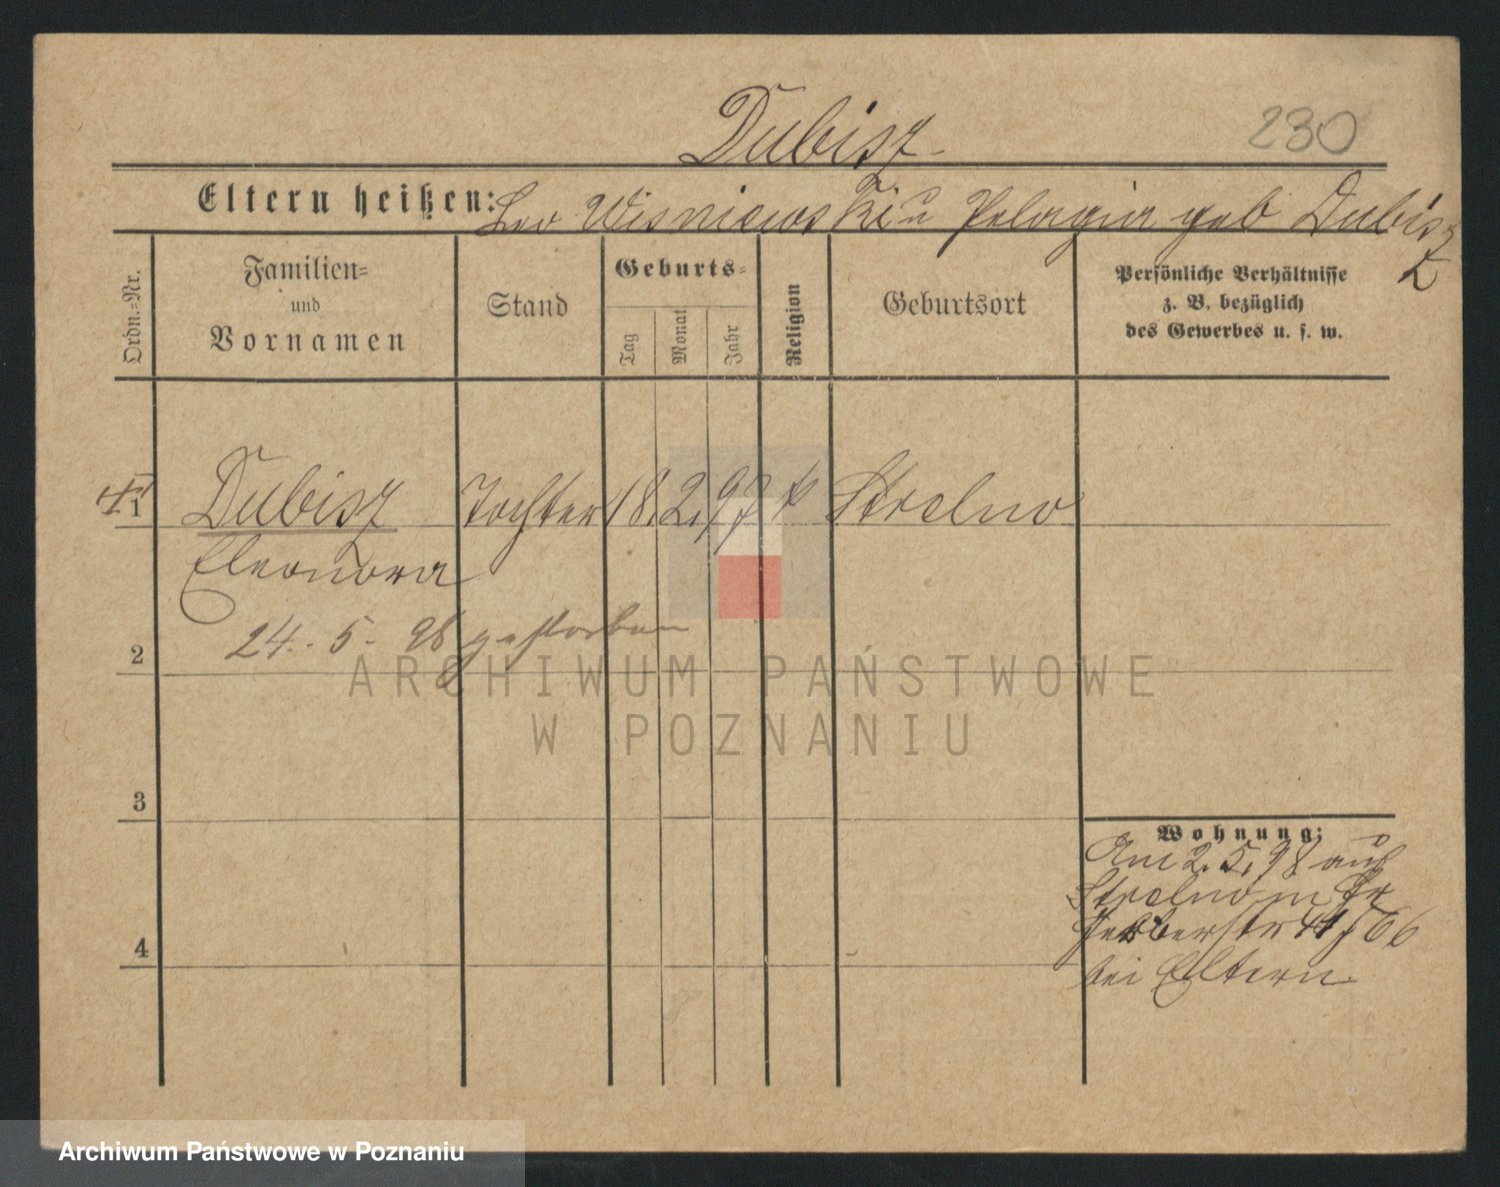 Dubisz
230
Eltern heißen: Leo Wisniewski u Pelagia geb Dubisz
Ordn.=Nr.
Familien=
und
Vornamen
Stand
Geburts=
Tag
Monat
Jahr
Religion
Geburtsort
Persönliche Verhältnisse
z. B. bezüglich
des Gewerbes u. s. w.
1 Dubisz Tochter 18. 2. 97 k Strelno
Eleonora
2 24. 5. 98 gestorben
ARCHIWUM PAŃSTWOWE
W POZNANIU
3
Wohnung:
Am 2. 5. 98 aus
Strelno n
4
bei Eltern
Archiwum Państwowe w Poznaniu